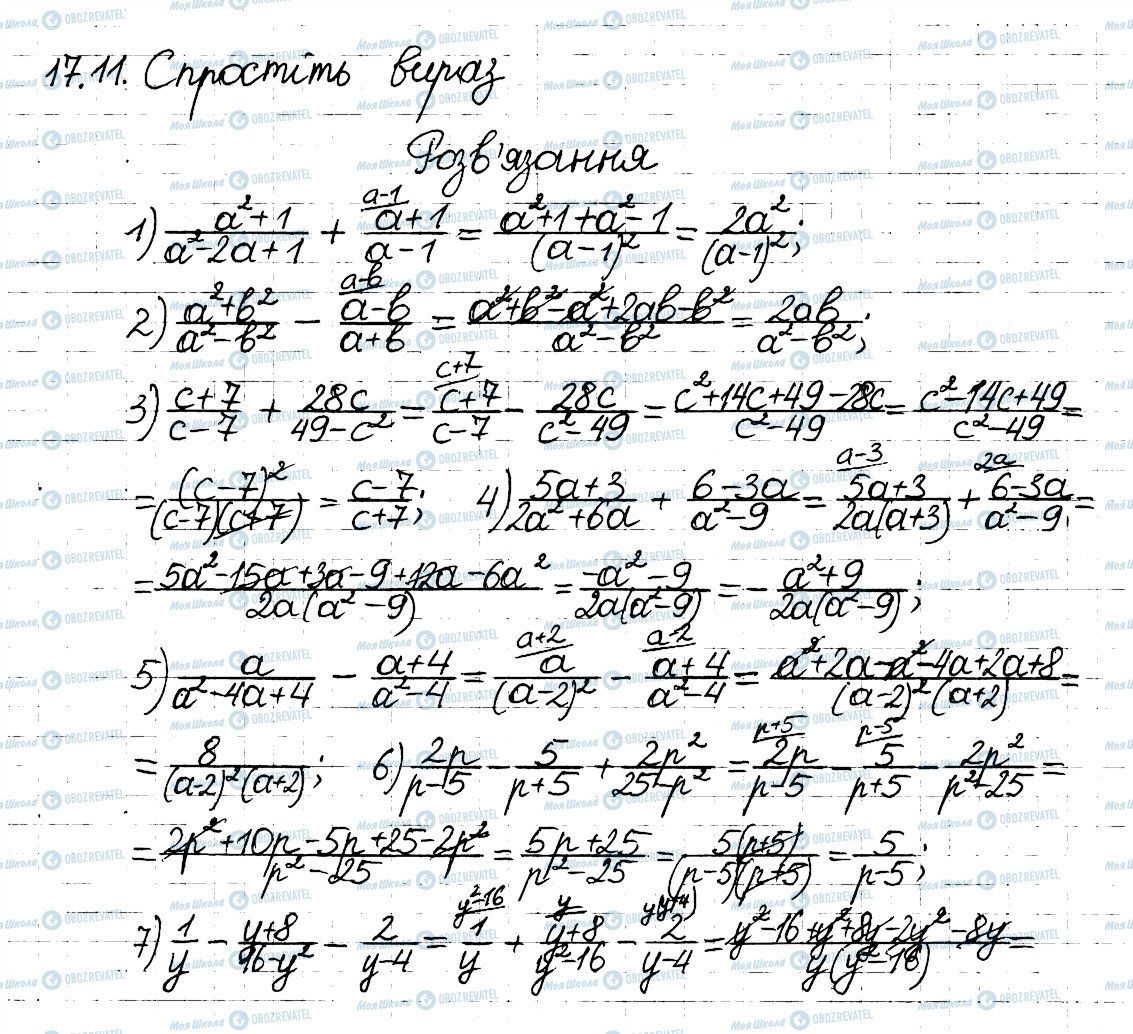 17.11. Спростіть вираз
Розв'язання
1) (a²+1)/(a²-2a+1) + (a+1)/(a-1) ^(a-1) = (a²+1+a²-1)/(a-1)² = 2a²/(a-1)²;
2) (a²+b²)/(a²-b²) - (a-b)/(a+b) ^(a-b) = (a²+b²-a²+2ab-b²)/(a²-b²) = 2ab/(a²-b²);
3) (c+7)/(c-7) + 28c/(49-c²) = (c+7)/(c-7) ^(c+7) - 28c/(c²-49) = (c²+14c+49-28c)/(c²-49) = (c²-14c+49)/(c²-49) =
= (c-7)²/((c-7)(c+7)) = (c-7)/(c+7); 4) (5a+3)/(2a²+6a) + (6-3a)/(a²-9) = (5a+3)/(2a(a+3)) ^(a-3) + (6-3a)/(a²-9) ^(2a) =
= (5a²-15a+3a-9+12a-6a²)/(2a(a²-9)) = (-a²-9)/(2a(a²-9)) = -(a²+9)/(2a(a²-9));
5) a/(a²-4a+4) - (a+4)/(a²-4) = a/(a-2)² ^(a+2) - (a+4)/(a²-4) ^(a-2) = (a²+2a-a²-4a+2a+8)/((a-2)²(a+2)) =
= 8/((a-2)²(a+2)); 6) 2p/(p-5) - 5/(p+5) + 2p²/(25-p²) = 2p/(p-5) ^(p+5) - 5/(p+5) ^(p-5) - 2p²/(p²-25) =
= (2p²+10p-5p+25-2p²)/(p²-25) = (5p+25)/(p²-25) = 5(p+5)/((p-5)(p+5)) = 5/(p-5);
7) 1/y - (y+8)/(16-y²) - 2/(y-4) = 1/y ^(y²-16) + (y+8)/(y²-16) ^(y) - 2/(y-4) ^(y(y+4)) = (y²-16+y²+8y-2y²-8y)/(y(y²-16)) =
МояШкола OBOZREVATEL